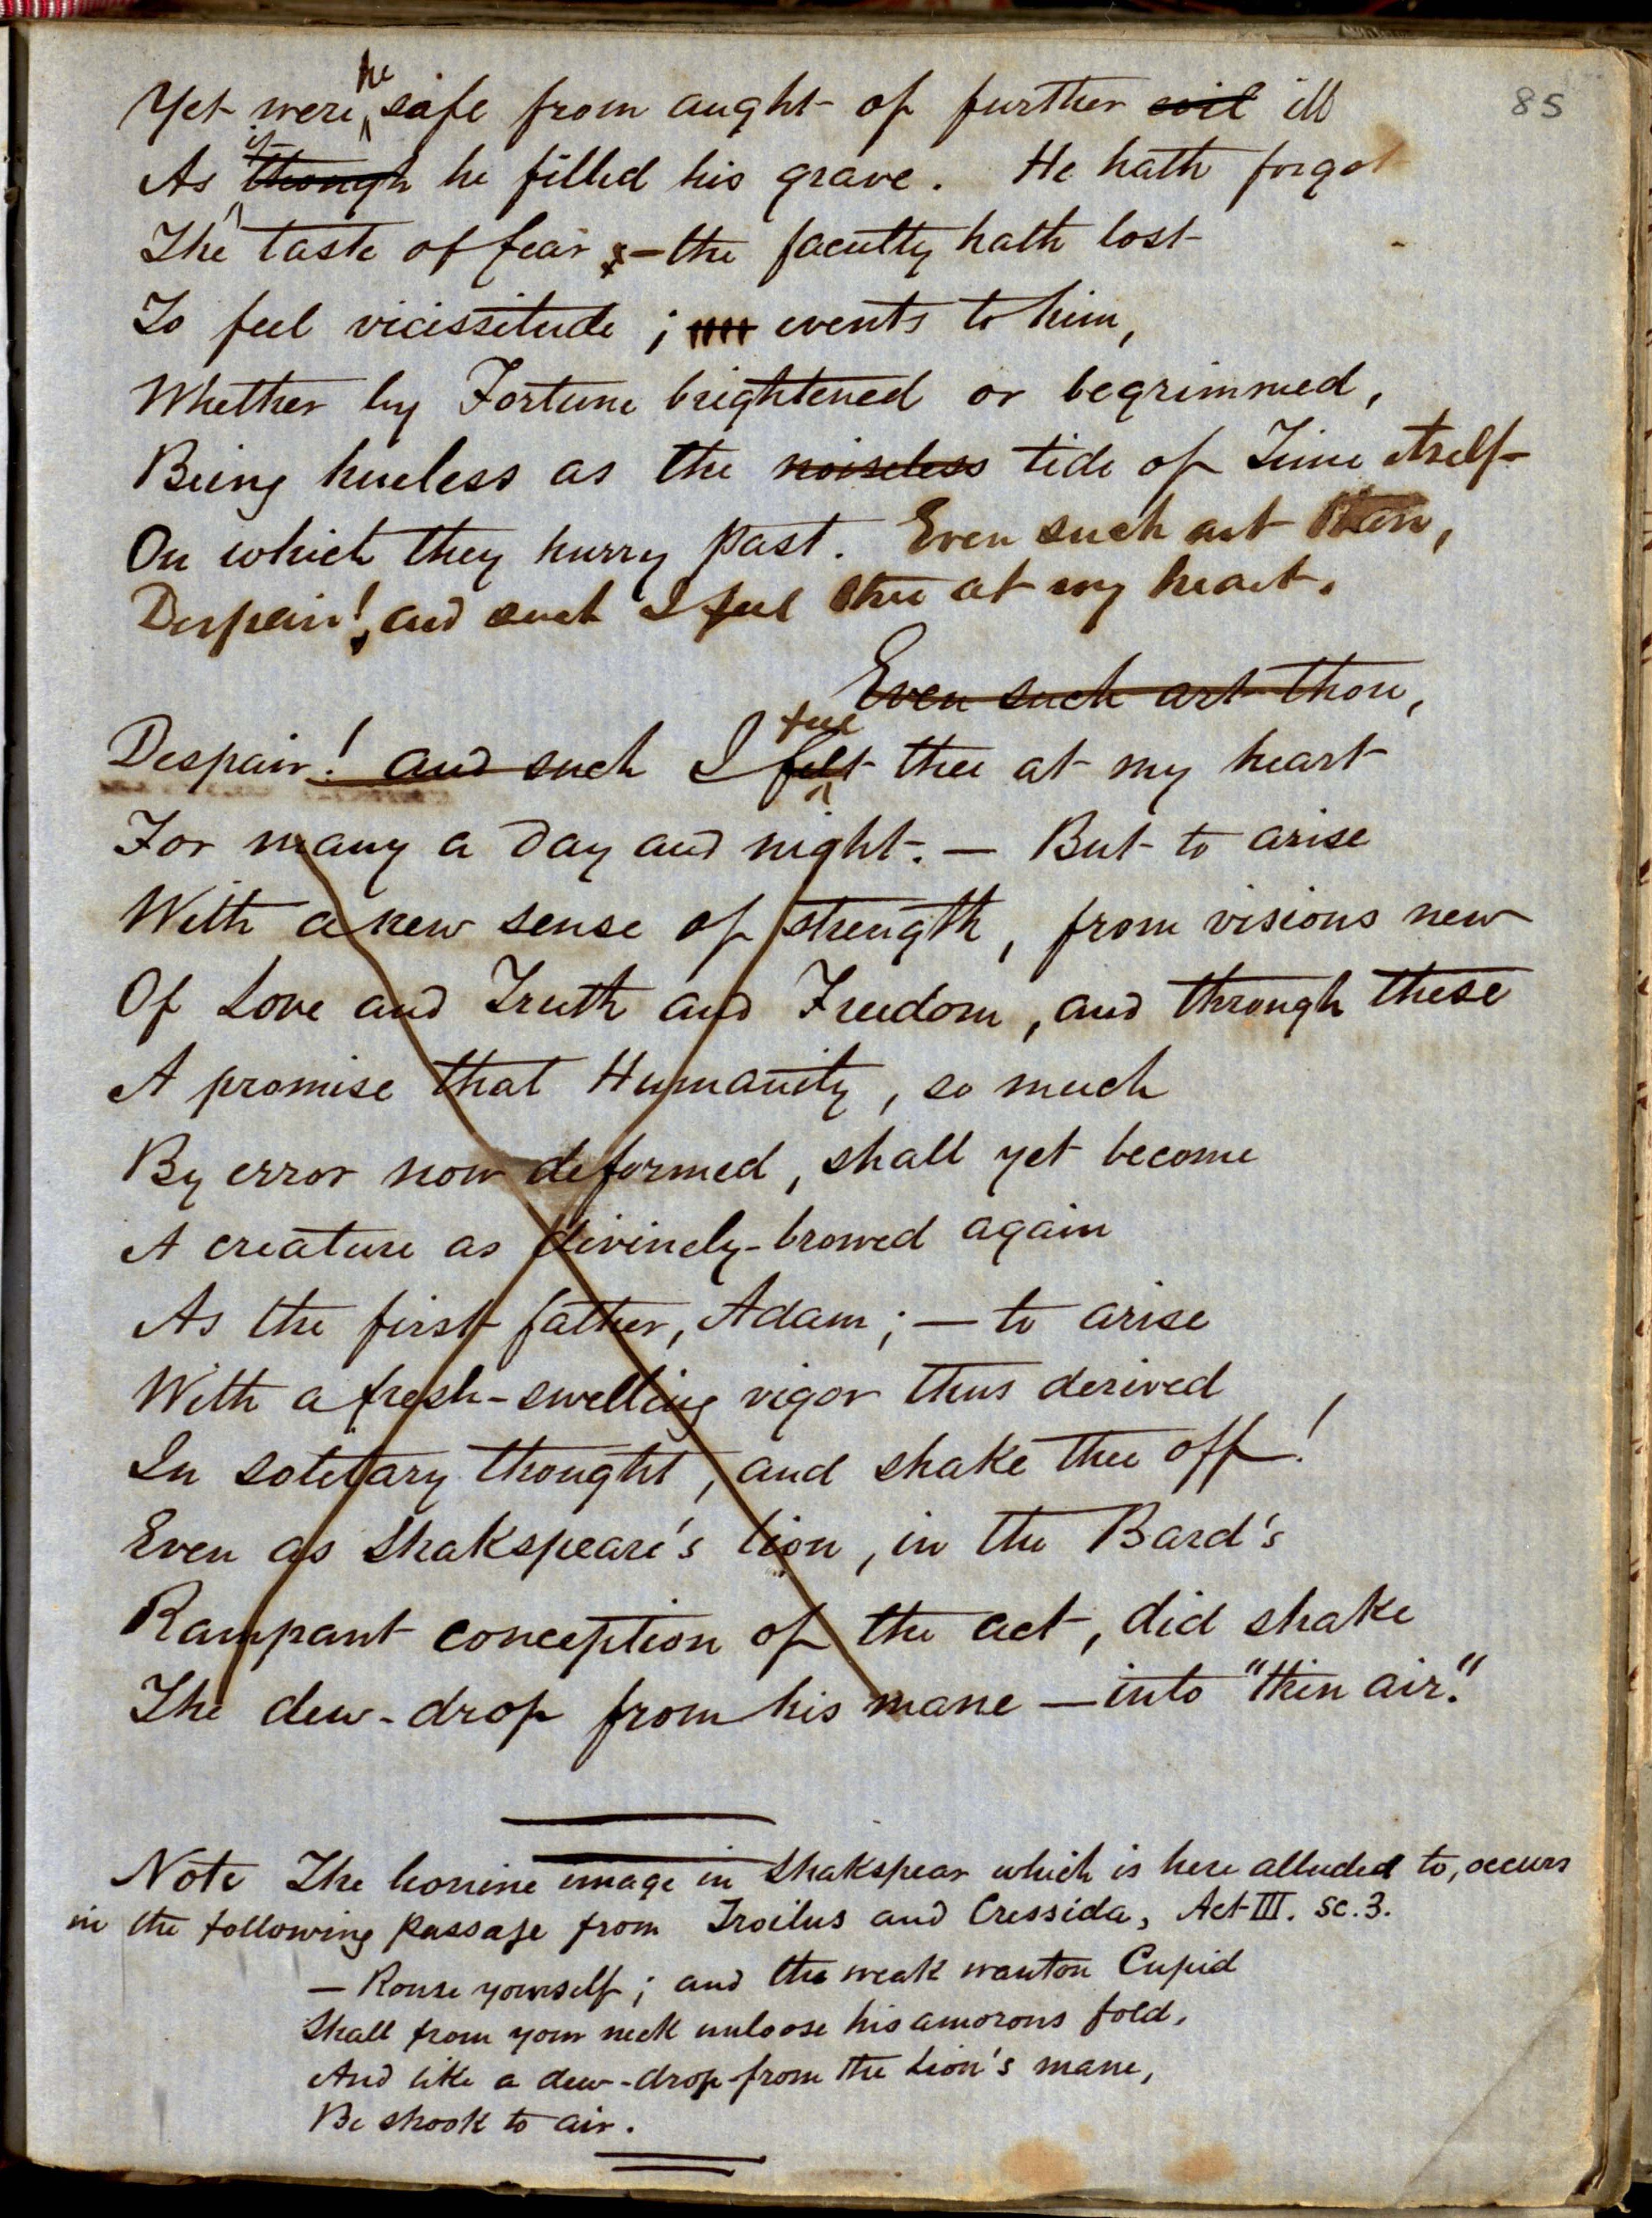 85
Yet were he safe from aught of further evil ill
As if though he filled his grave. He hath forgot
The taste of fear; — the faculty hath lost
To feel vicissitude; events to him,
Whether by Fortune brightened or begrimmed,
Being hueless as the noiseless tide of Time itself
On which they hurry past. Even such art thou,
Despair! and such I feel thee at my heart.
Even such art thou,
Despair! and such I felt feel thee at my heart
For many a day and night. — But to arise
With a new sense of strength, from visions new
Of Love and Truth and Freedom, and through these
A promise that Humanity, so much
By error now deformed, shall yet become
A creature as divinely-browed again
As the first father, Adam; — to arise
With a fresh-swelling vigor thus derived
In solitary thought, and shake thee off!
Even as Shakspeare's lion, in the Bard's
Rampant conception of the act, did shake
The dew-drop from his mane — into "thin air."
Note The leonine image in Shakspear which is here alluded to, occurs
in the following passage from Troilus and Cressida, Act III. Sc. 3.
— Rouse yourself; and the weak wanton Cupid
Shall from your neck unloose his amorous fold,
And like a dew-drop from the Lion's mane,
Be shook to air.